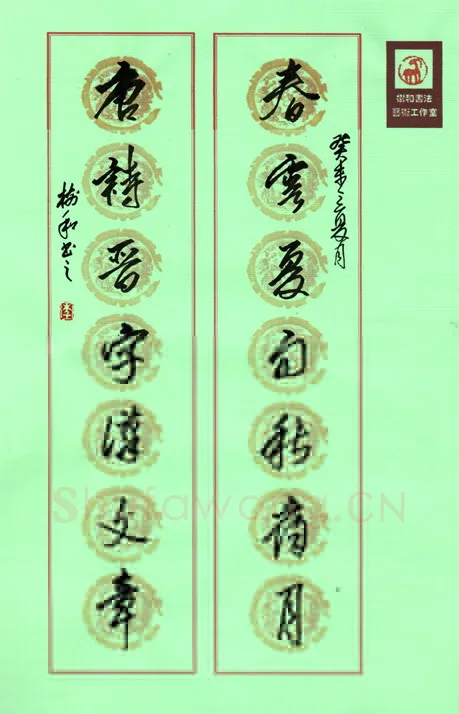 春雲夏雨秋夜月
癸未之夏月
唐詩晉字漢文章
樹和書之
樹和書法
藝術工作室